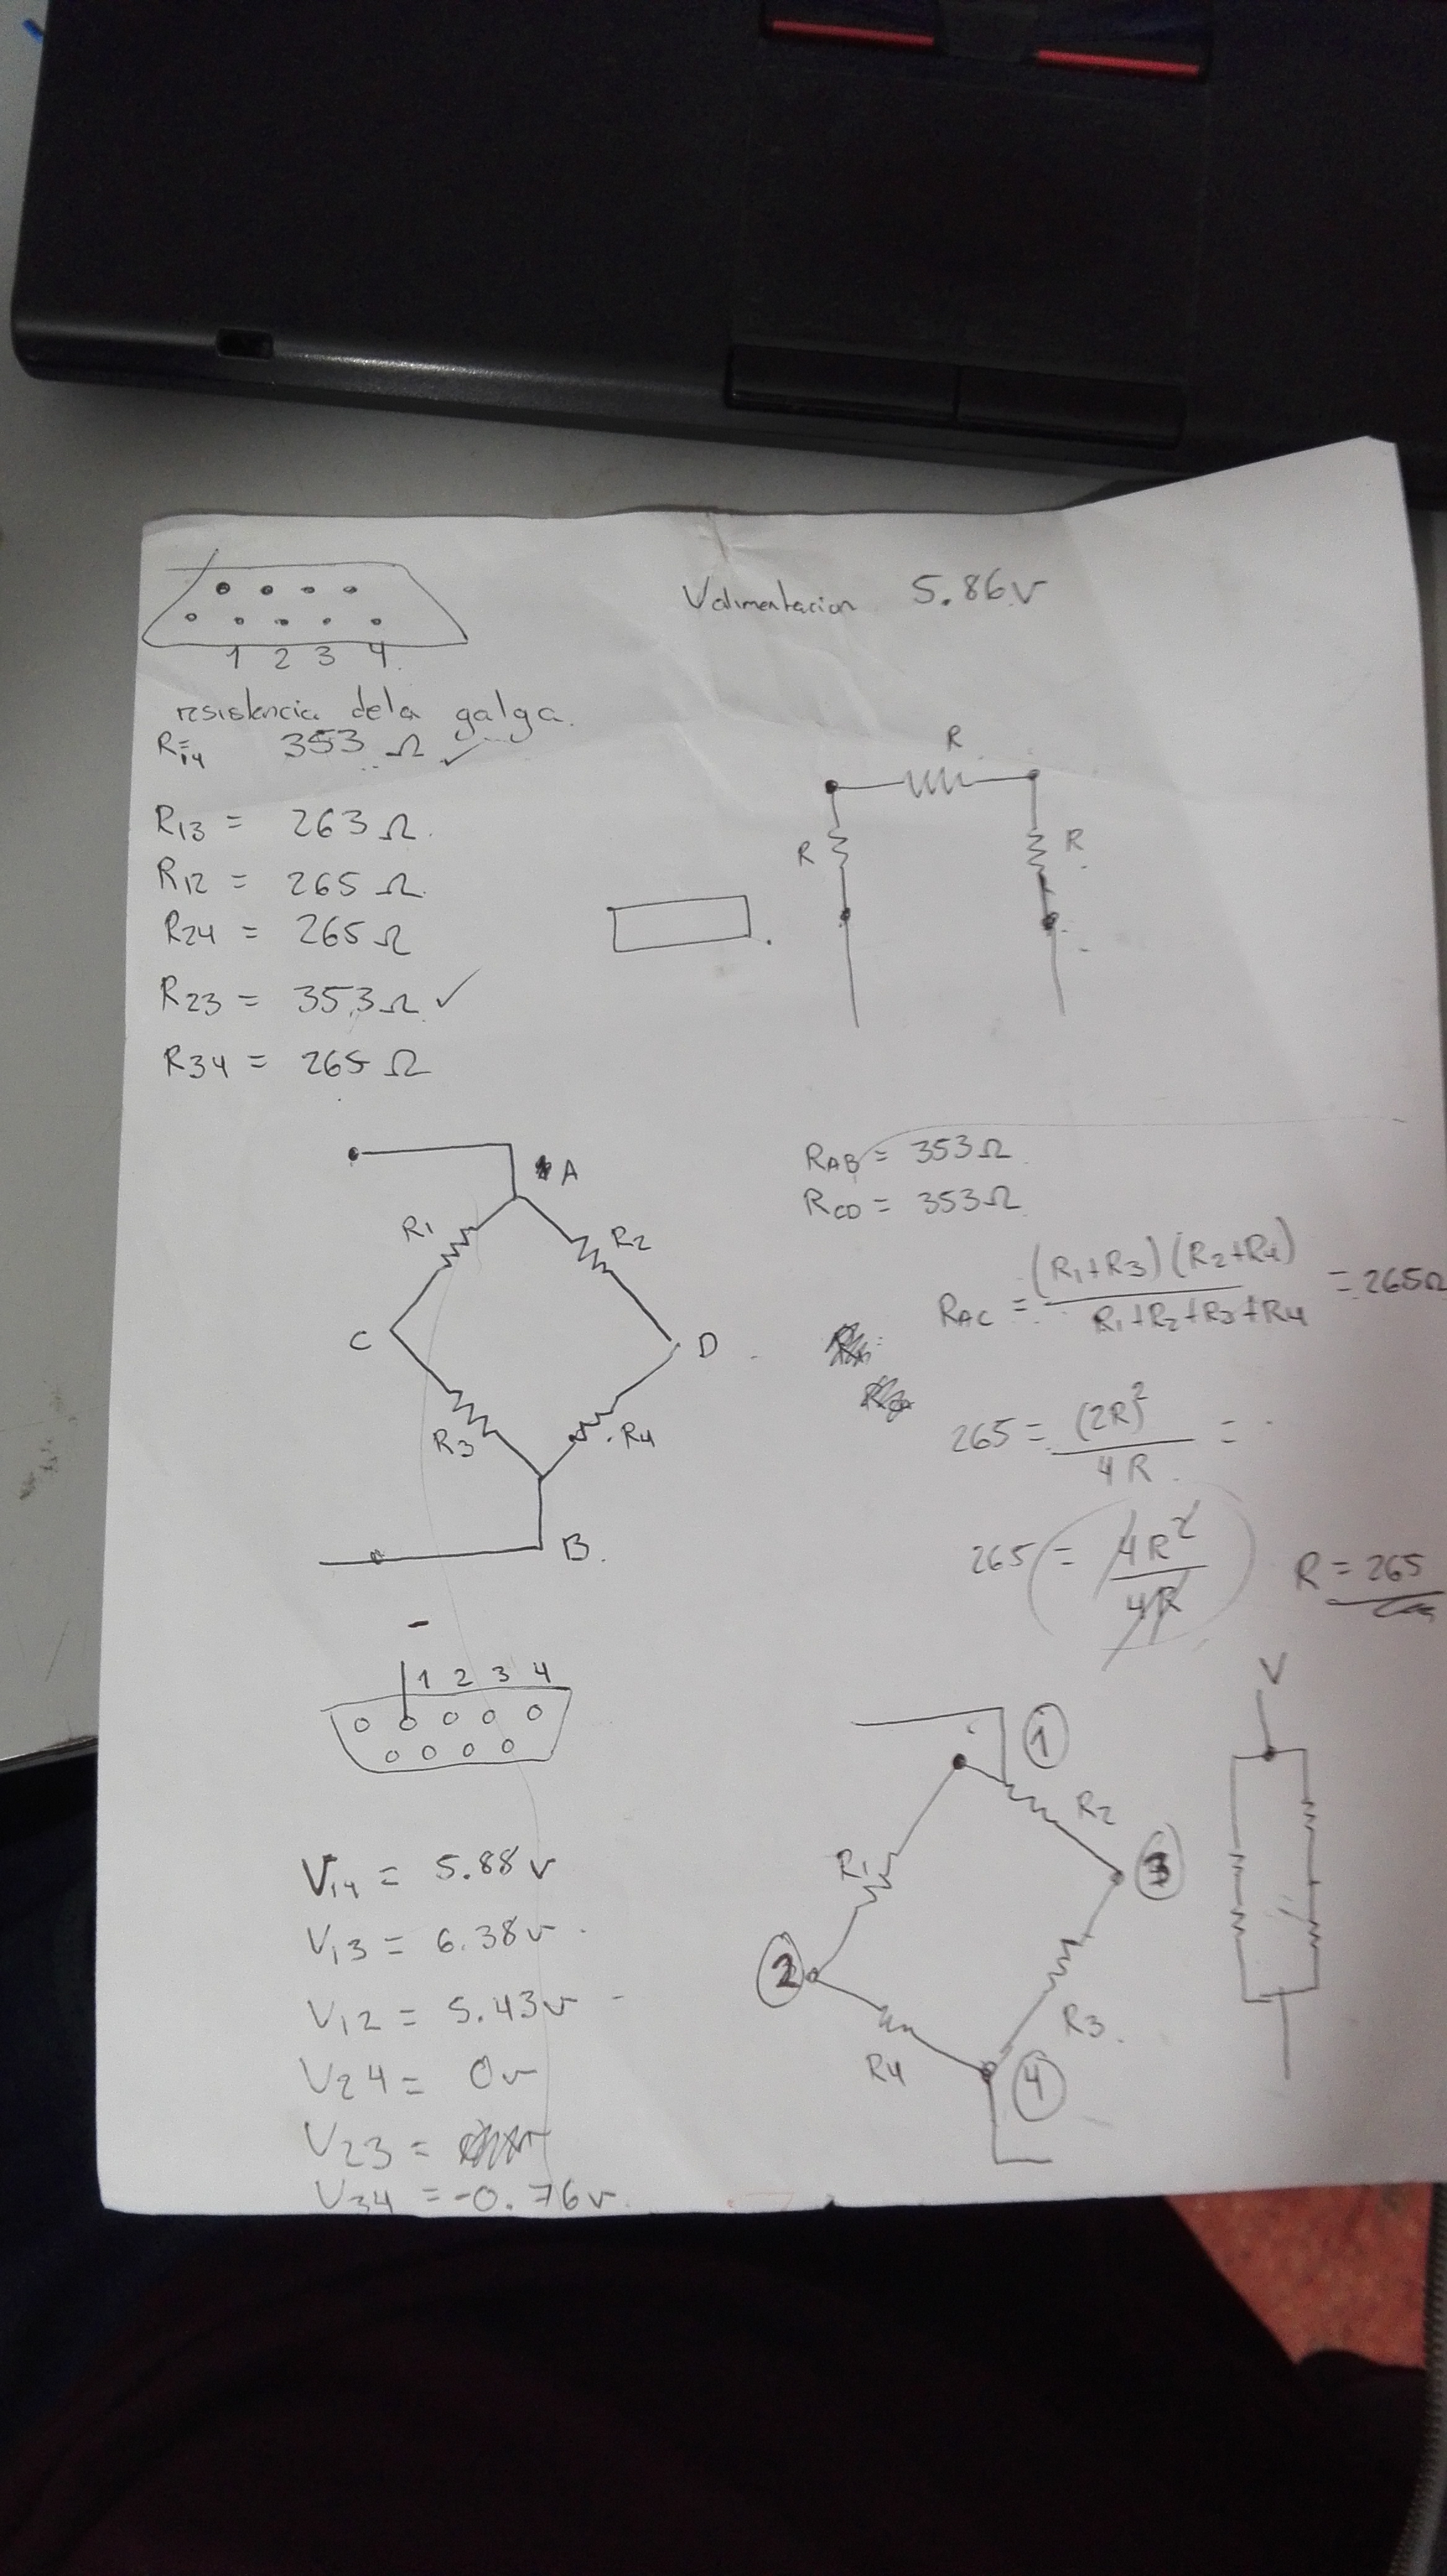 Valimentacion 5.86v
1 2 3 4
resistencia dela galga.
R14 = 353 Ω ✓
R13 = 263 Ω
R12 = 265 Ω
R24 = 265 Ω
R23 = 353 Ω ✓
R34 = 265 Ω
R
R
R
A
R1
R2
C
D
R3
R4
B.
RAB = 353 Ω
RCD = 353 Ω
RAC = (R1+R3)(R2+R4) / R1+R2+R3+R4 = 265Ω
265 = (2R)² / 4R =
265 = 4R² / 4R
R = 265
-
1 2 3 4
V14 = 5.88 v
V13 = 6.38 v
V12 = 5.43 v
V24 = 0 v
V23 =
V34 = -0.76 v
1
R2
R1
3
2
R3
R4
4
V